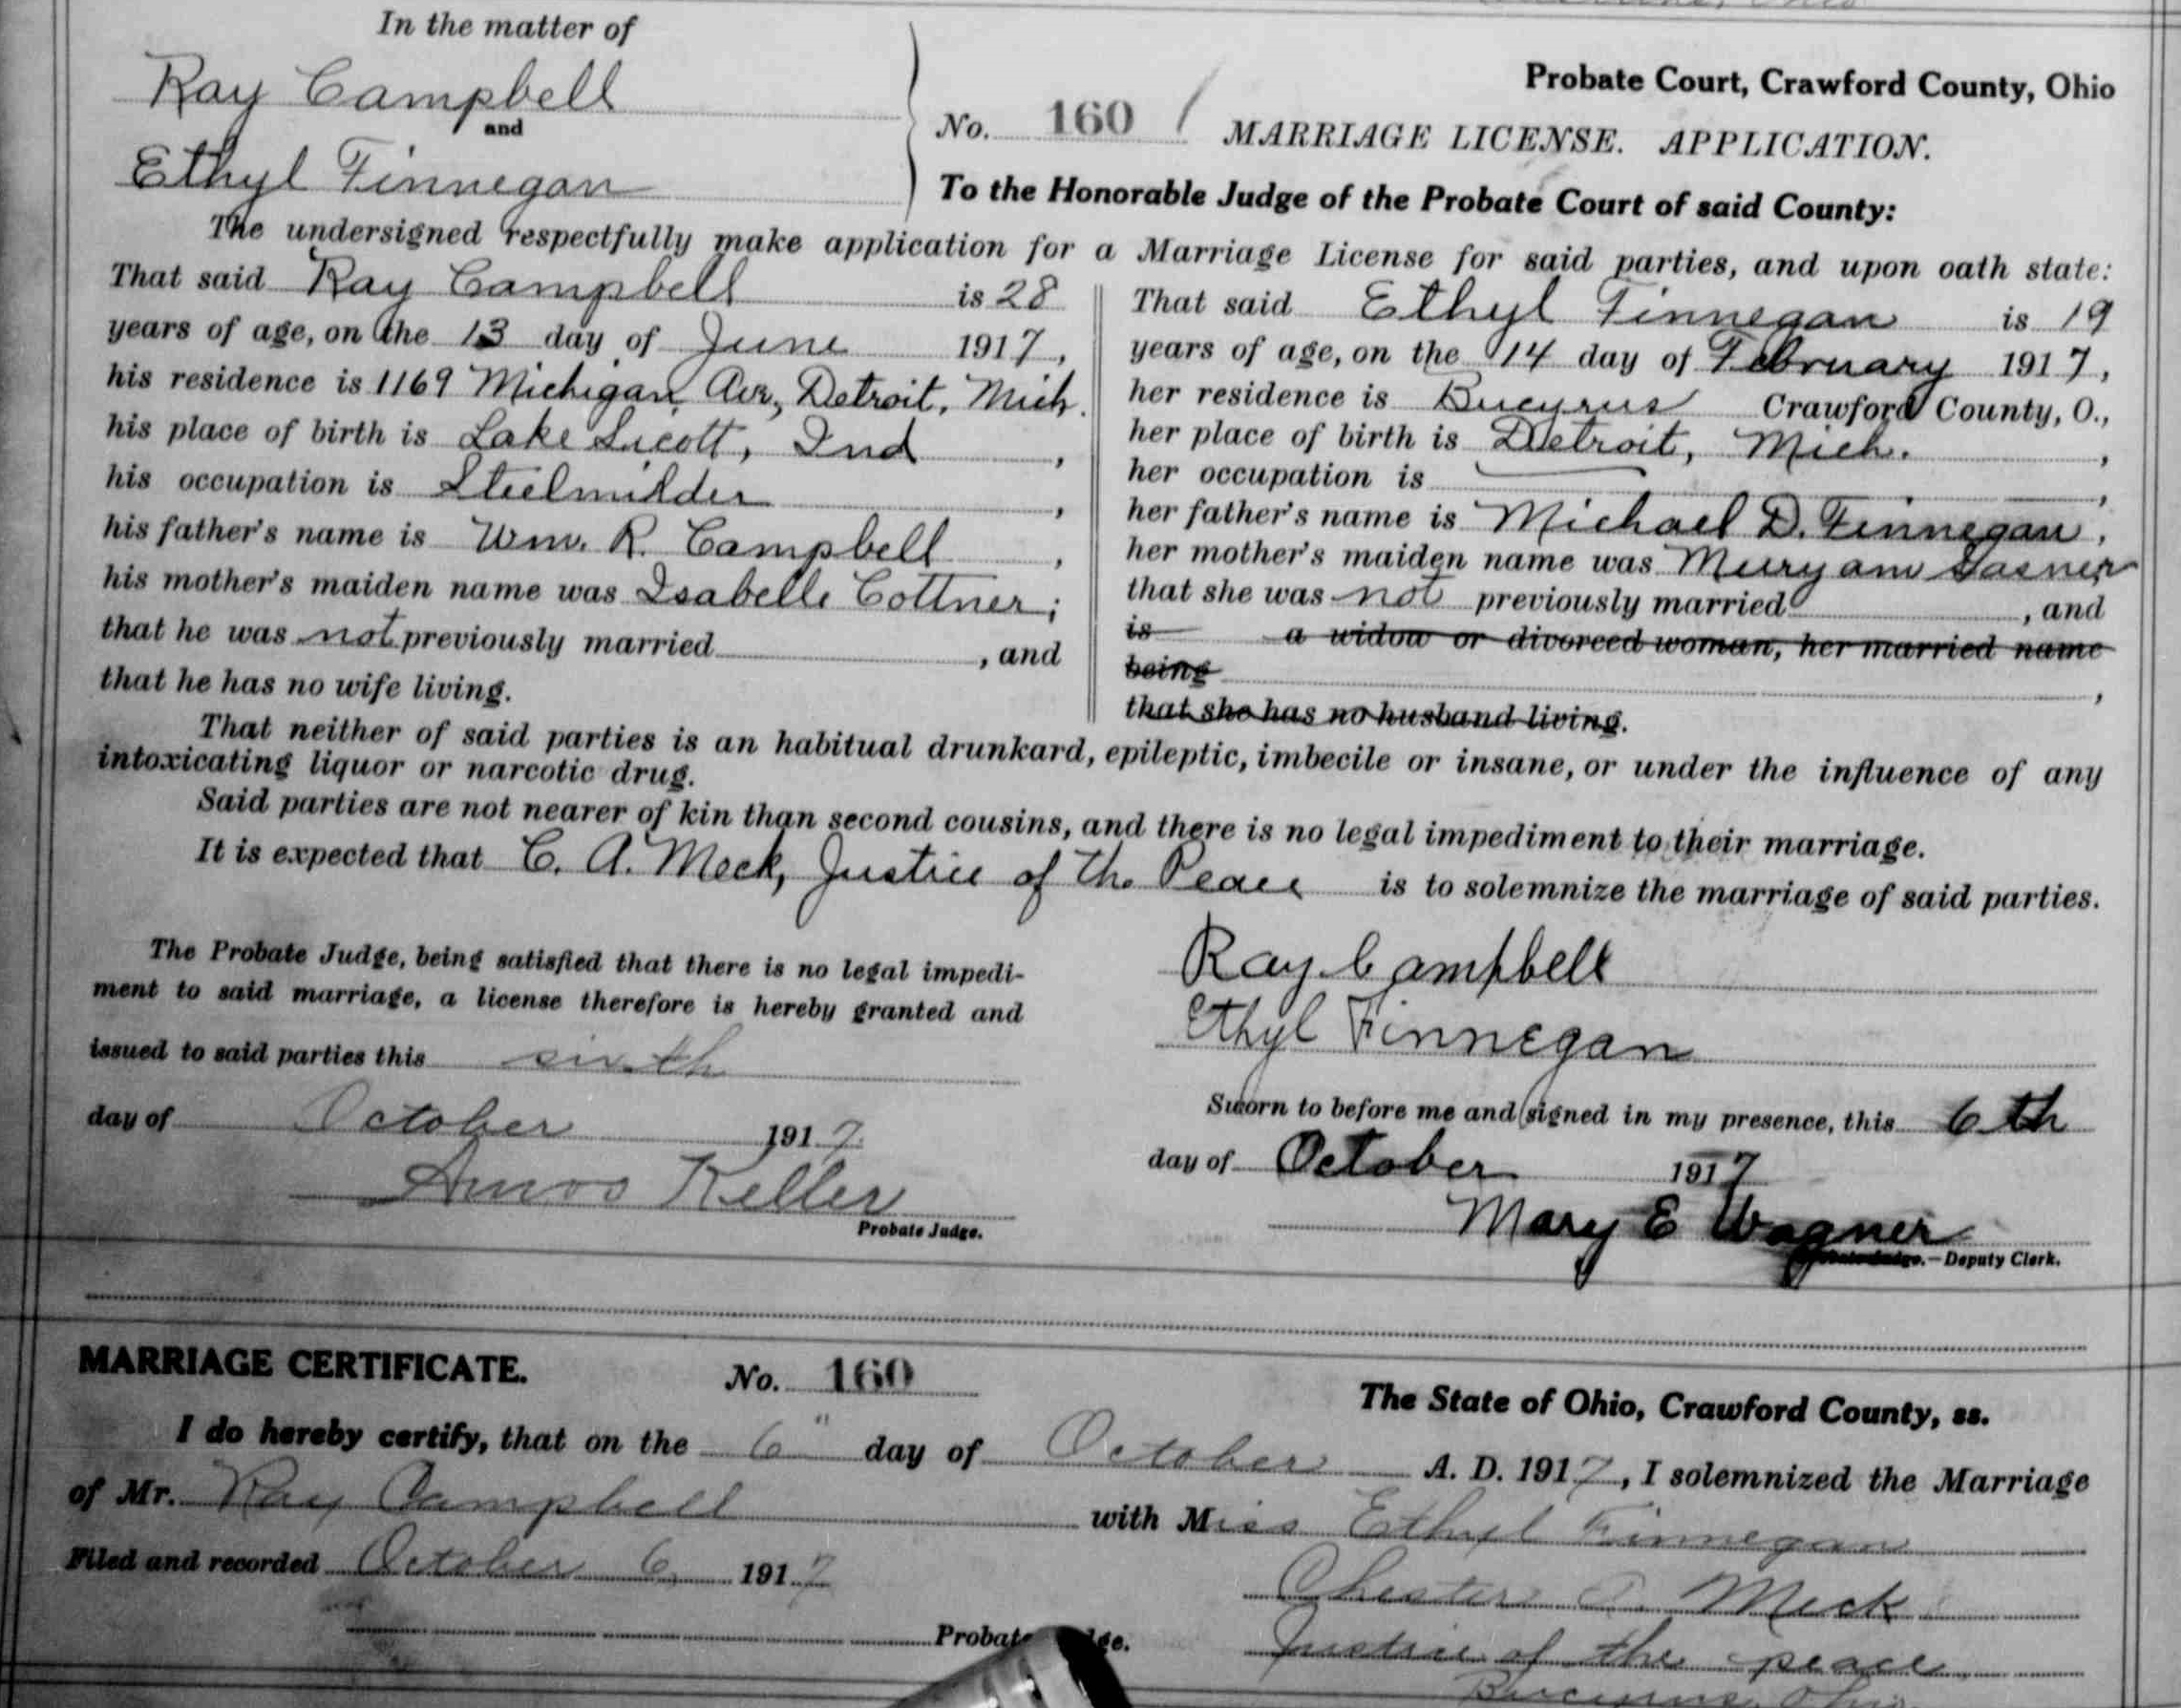 In the matter of
Ray Campbell
and
Ethyl Finnegan
Probate Court, Crawford County, Ohio
No. 160 MARRIAGE LICENSE. APPLICATION.
To the Honorable Judge of the Probate Court of said County:
The undersigned respectfully make application for a Marriage License for said parties, and upon oath state:
That said Ray Campbell is 28
years of age, on the 13 day of June 1917,
his residence is 1169 Michigan Ave, Detroit, Mich.
his place of birth is Lake Sicott, Ind,
his occupation is
his father's name is Wm. R. Campbell,
his mother's maiden name was Isabelle Cottner;
that he was not previously married, and
that he has no wife living.
That said Ethyl Finnegan is 19
years of age, on the 14 day of February 1917,
her residence is Bucyrus Crawford County, O.,
her place of birth is Detroit, Mich.,
her occupation is —,
her father's name is Michael D. Finnegan,
her mother's maiden name was
that she was not previously married, and
is a widow or divorced woman, her married name
being,
that she has no husband living.
That neither of said parties is an habitual drunkard, epileptic, imbecile or insane, or under the influence of any
intoxicating liquor or narcotic drug.
Said parties are not nearer of kin than second cousins, and there is no legal impediment to their marriage.
It is expected that C. A. Meck, Justice of the Peace is to solemnize the marriage of said parties.
The Probate Judge, being satisfied that there is no legal impedi-
ment to said marriage, a license therefore is hereby granted and
issued to said parties this sixth
day of October 1917
Amos Keller
Probate Judge.
Ray Campbell
Ethyl Finnegan
Sworn to before me and signed in my presence, this 6th
day of October 1917
Mary E Wagner
Probate Judge.—Deputy Clerk.
MARRIAGE CERTIFICATE. No. 160
The State of Ohio, Crawford County, ss.
I do hereby certify, that on the 6" day of October A. D. 1917, I solemnized the Marriage
of Mr. Ray Campbell with Miss Ethyl Finnegan
Filed and recorded October 6, 1917
Chester A. Meck
Probate Judge.
Justice of the peace
Bucyrus, Ohio